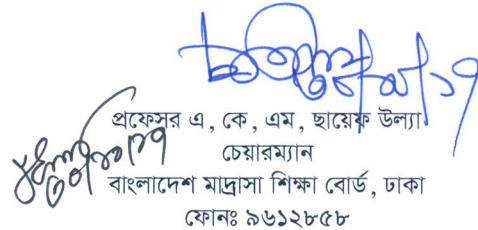 প্রফেসর এ, কে, এম, ছায়েফ উল্যা
চেয়ারম্যান
বাংলাদেশ মাদ্রাসা শিক্ষা বোর্ড, ঢাকা
ফোনঃ ৯৬১২৮৫৮